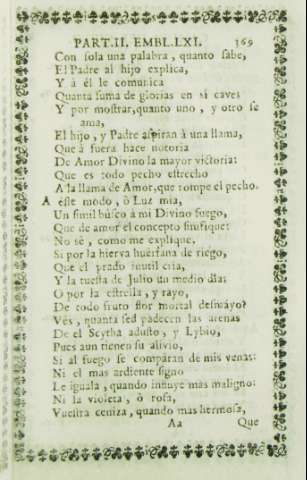 PART.II. EMBL.LXI. 369
Con sola una palabra, quanto sabe,
El Padre al hijo explica,
Y à él le comunica
Quanta suma de glorias en si cave:
Y por mostrar, quanto uno, y otro se
ama,
El hijo, y Padre aspiran à una llama,
Que à fuera hace notoria
De Amor Divino la mayor victoria:
Que es todo pecho estrecho
A la llama de Amor, que rompe el pecho.
A este modo, ò Luz mia,
Un simil busco à mi Divino fuego,
Que de amor el concepto signifique:
No sè, como me explique,
Si por la hierva huerfana de riego,
Que el prado inutil cria,
Y la tuesta de Julio un medio dia:
O por la estrella, y rayo,
De todo fruto flor mortal desmayo?
Vès, quanta sed padecen las arenas
De el Scytha adusto, y Lybio,
Pues aun tienen su alivio,
Si al fuego se comparan de mis venas:
Ni el mas ardiente signo
Le iguala, quando influye mas maligno:
Ni la violeta, ò rosa,
Vuestra ceniza, quando mas hermosa,
Aa Que